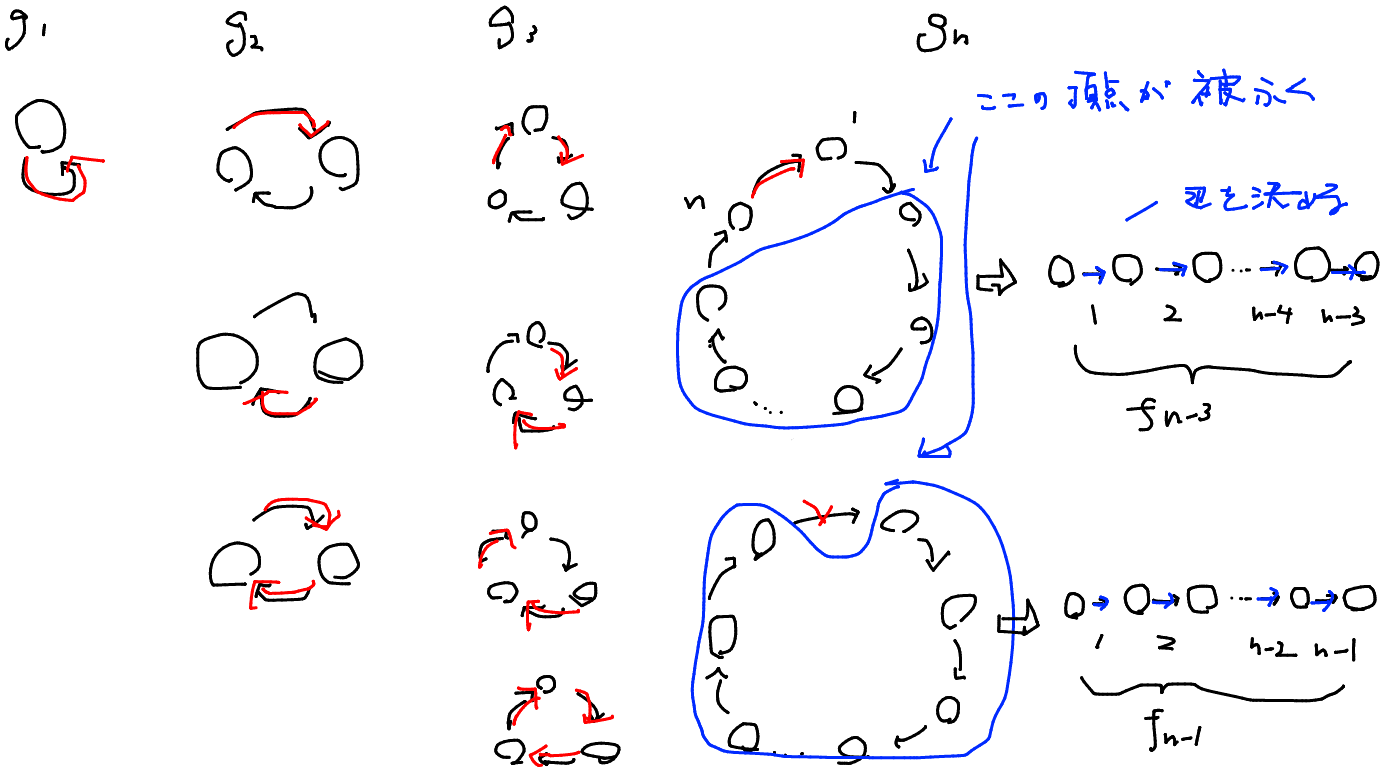 g1 g2 g3 gn
ここの頂点が被ふく
1
n
辺を決める
1 2 n-4 n-3
fn-3
1 2 n-2 n-1
fn-1